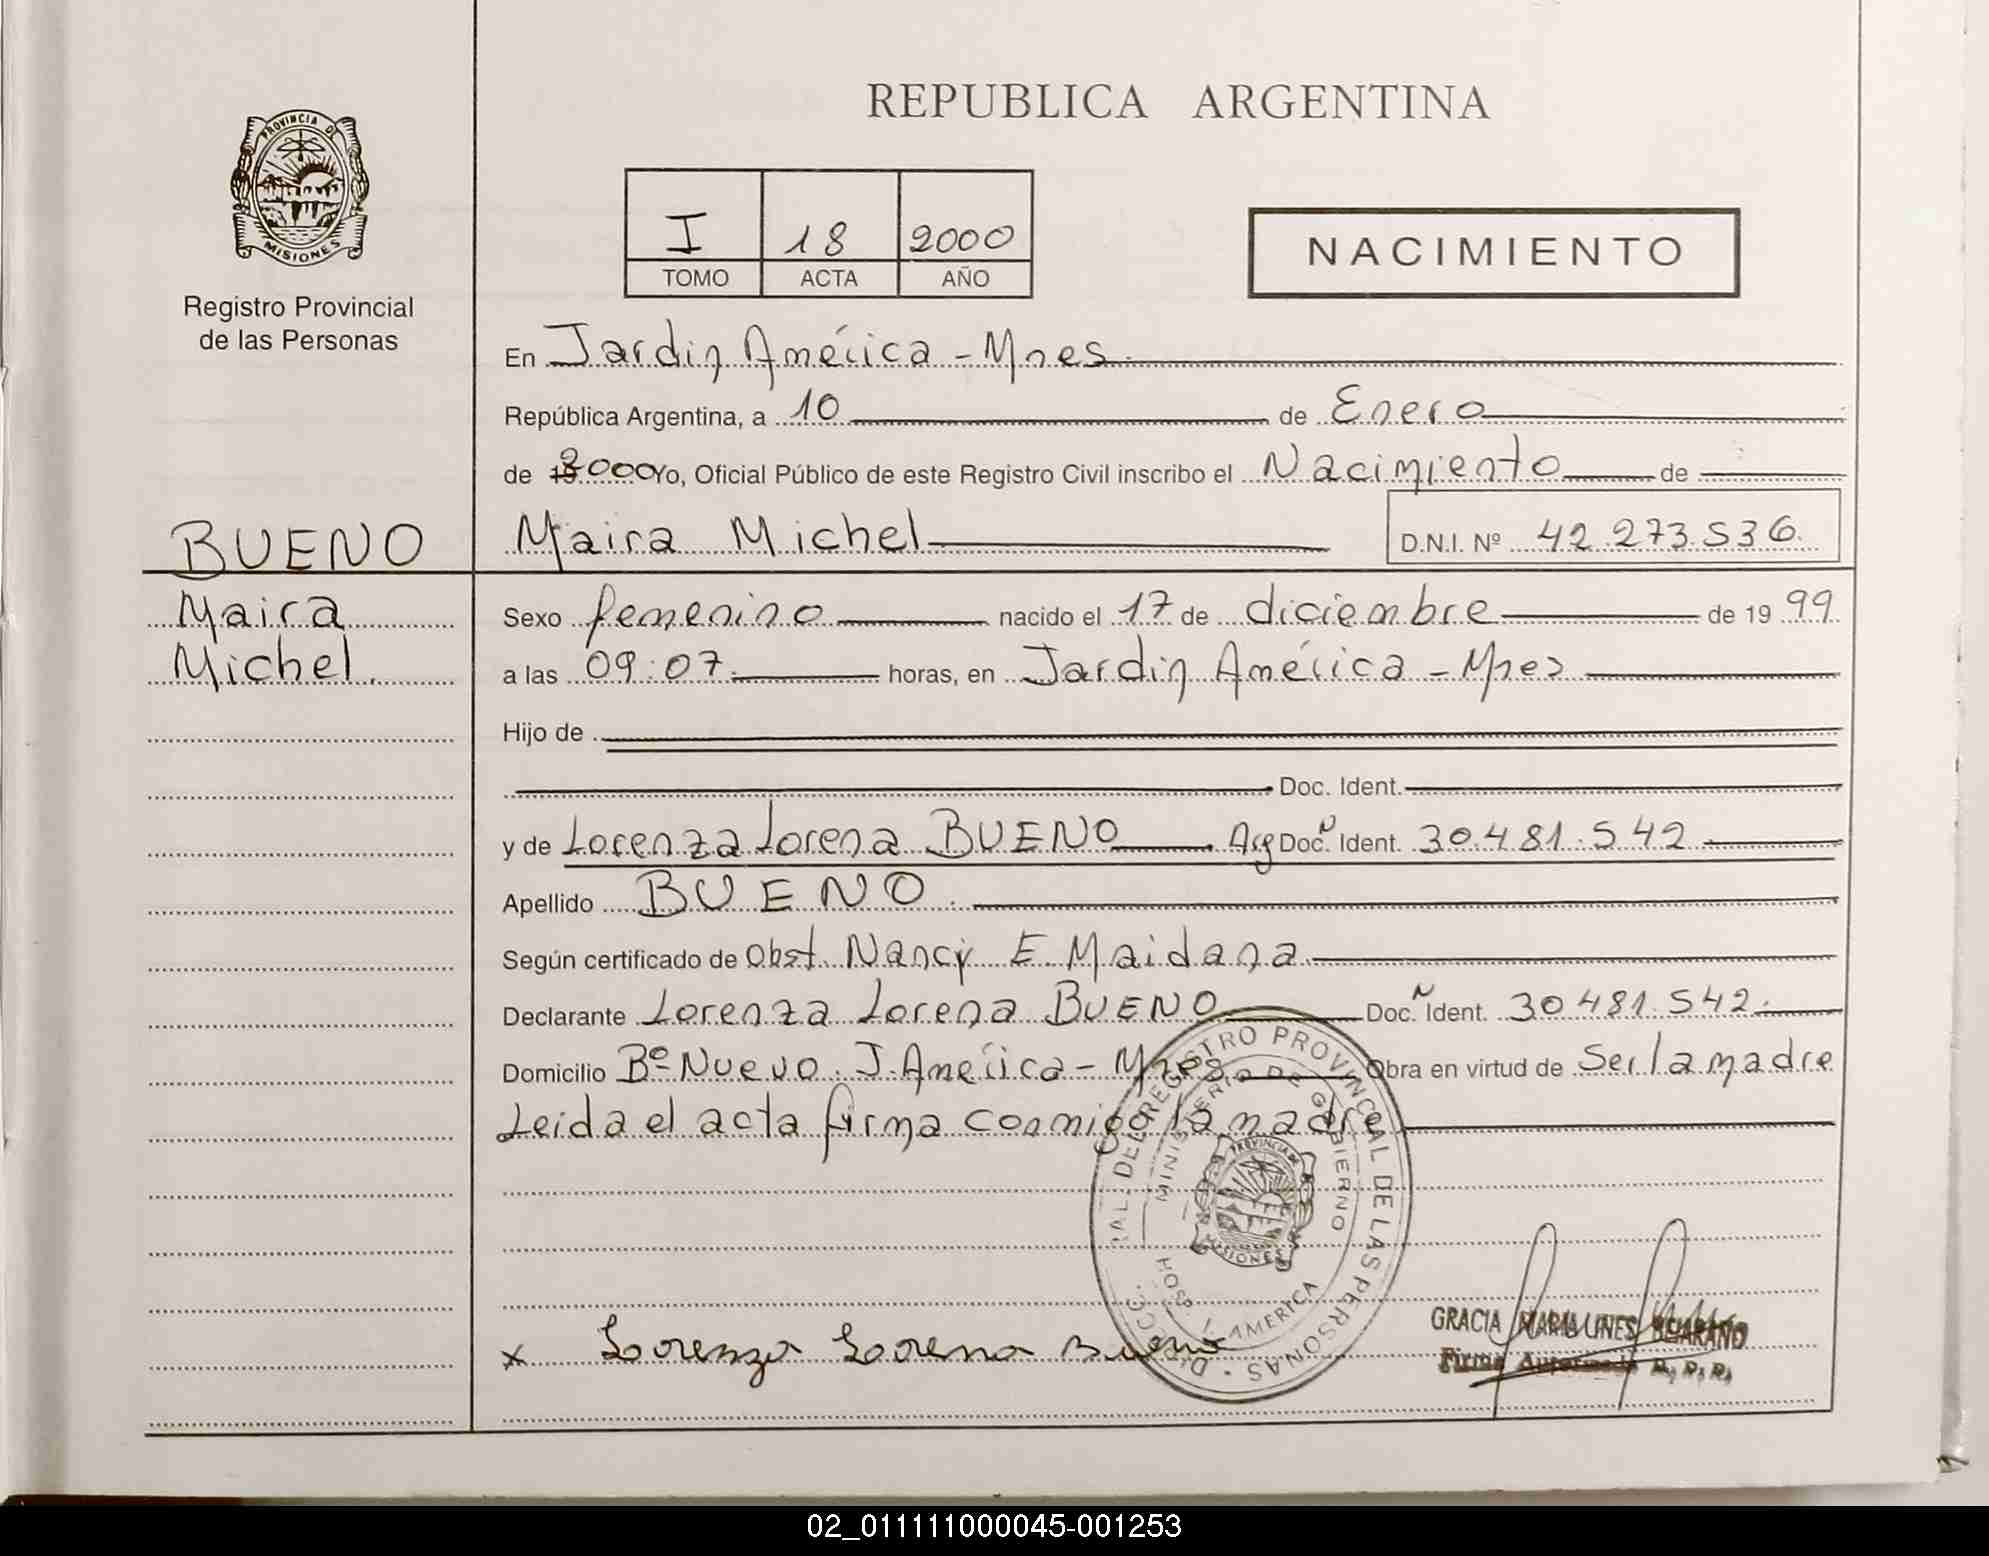 REPUBLICA ARGENTINA
PROVINCIA DE
MISIONES
Registro Provincial
de las Personas
I 18 2000
TOMO ACTA AÑO
NACIMIENTO
En Jardin América - Mnes.
República Argentina, a 10 de Enero
de 2000 Yo, Oficial Público de este Registro Civil inscribo el Nacimiento de
BUENO Maira Michel D.N.I. Nº 42.273.536.
Maira
Michel.
Sexo femenino nacido el 17 de diciembre de 19 99
a las 09:07 horas, en Jardin América - Mnes
Hijo de
Doc. Ident.
y de Lorenza Lorena BUENO Arg Doc. Ident. 30.481.542
Apellido BUENO.
Según certificado de Obst. Nancy E Maidana
Declarante Lorenza Lorena BUENO Doc. Ident. 30 481.542.
Domicilio Bº Nuevo. J. América - Mnes Obra en virtud de Ser la madre
Leida el acta firma conmigo la madre
DEL REGISTRO PROVINCIAL DE LAS PERSONAS
MINISTERIO DE GOBIERNO
PROVINCIA DE
MISIONES
HOSP. J. AMERICA
x Lorenza Lorena Bueno
GRACIA
Firma Autorizada R. P. P.
02_011111000045-001253